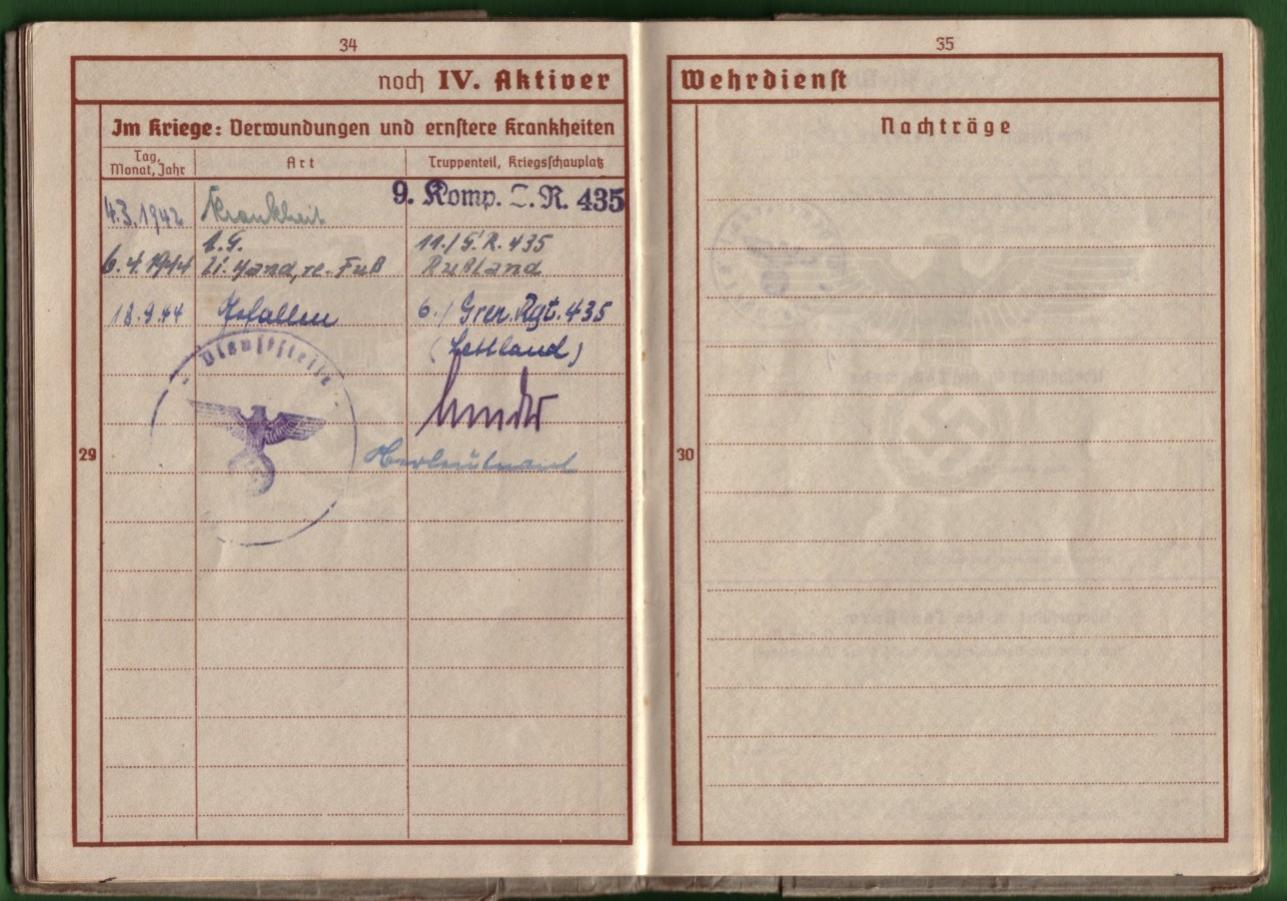 34
noch IV. Aktiver
Im Kriege: Verwundungen und ernstere Krankheiten
Tag, Monat, Jahr
Art
Truppenteil, Kriegsschauplatz
9. Komp. I. R. 435
4.3.1942 Krankheit
6.4.1944 li. Hand, re. Fuß
11./G.R. 435
Rußland
18.9.44 Gefallen 6./Gren. Rgt. 435
(Lettland)
Dienststelle
Oberleutnant
29
35
Wehrdienst
Nachträge
30